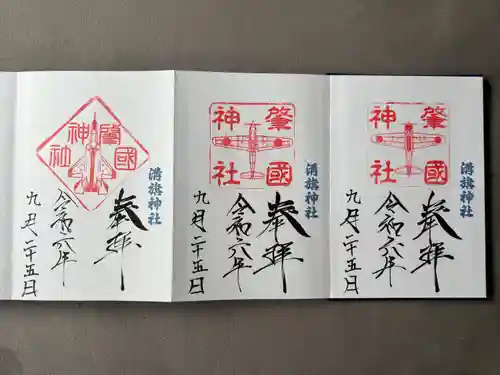 溝旗神社
奉拝
肇國
神社
令和六年
九月二十五日
溝旗神社
奉拝
肇國
神社
令和六年
九月二十五日
溝旗神社
奉拝
肇國
神社
令和六年
九月二十五日